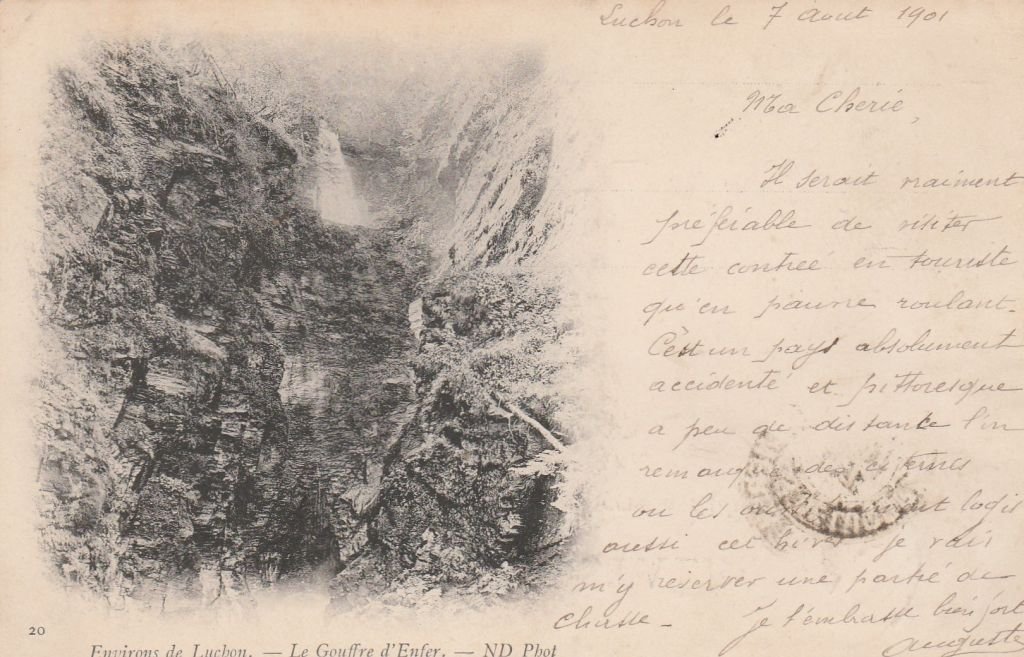 Luchon le 7 Aout 1901
Ma Cherie,
Il serait vraiment
préférable de visiter
cette contreé en touriste
qu'en pauvre roulant.
C'est un pays absolument
accidenté et pittoresque
a peu de distance l'on
remarque des citernes
ou les ours ont logis
aussi cet hiver je vais
m'y reserver une partié de
chasse. Je t'embrasse bien fort
Auguste
20
Environs de Luchon. — Le Gouffre d'Enfer. — ND Phot